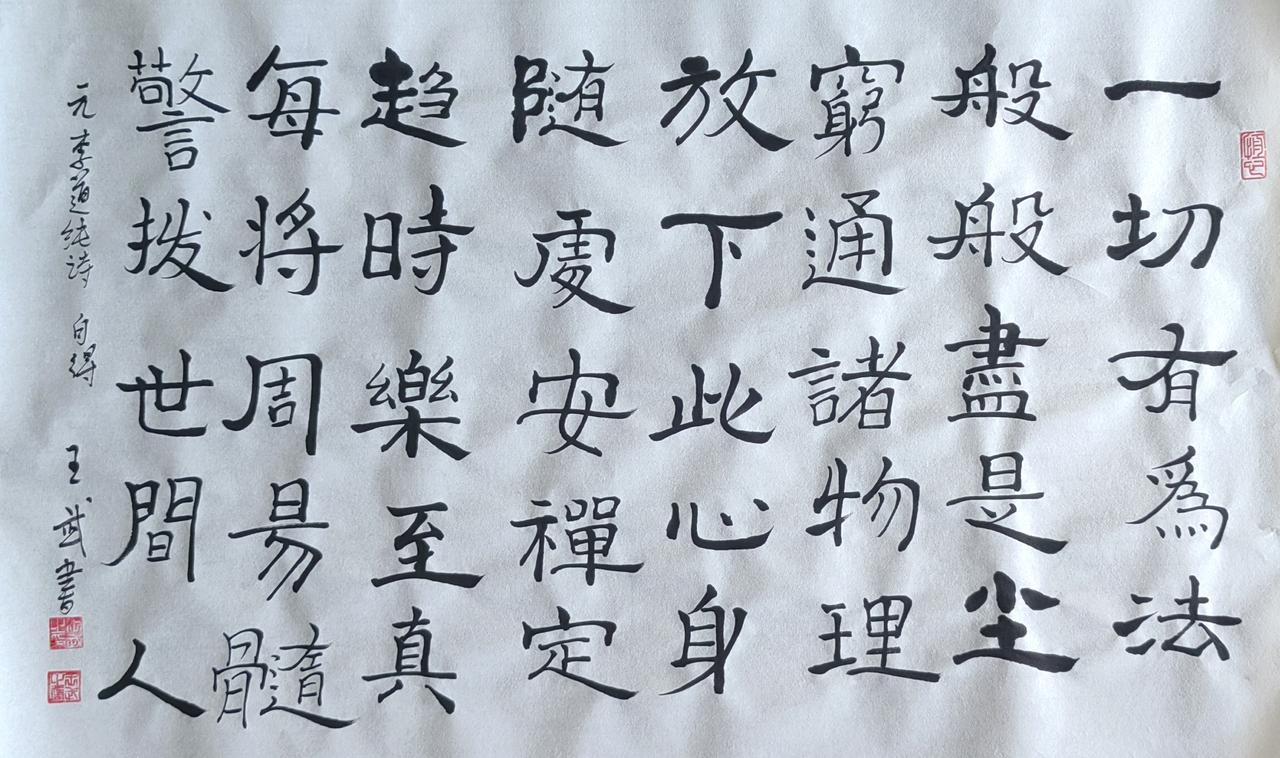 一切有爲法
般般盡是尘
窮通諸物理
放下此心身
随處安禪定
趋時樂至真
每将周易髓
警拨世間人
元李道纯诗 自得
王武書